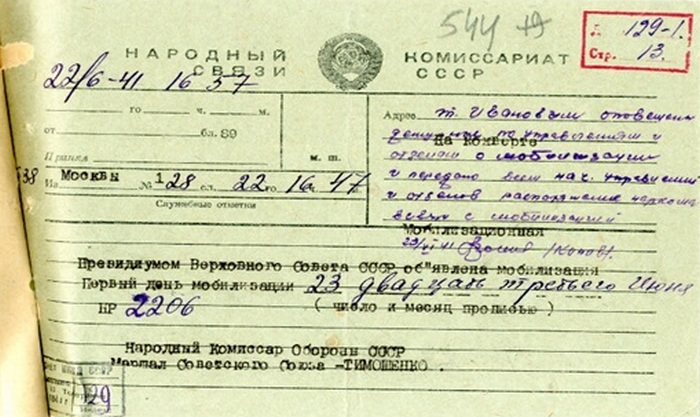 544
129-1.
Стр. 13.
НАРОДНЫЙ КОМИССАРИАТ
СВЯЗИ СССР
22/6-41 16 57
го ч. м.
от бл. 89
Правка м. ш.
Адрес т. Ивановым оповещены
дежурные по управлениям и
На конверте
отделам о мобилизации
и передано всем нач. управлений
и отделов распоряжение наркома
связи с мобилизацией
Из Москвы № 128 сл. 22 го 16 47
Служебные отметки
Мобилизационная
Президиумом Верховного Совета СССР об"явлена мобилизация
Первый день мобилизации 23 двадцать третьего Июня
НР 2206 ( число и месяц прописью )
Народный Комиссар Обороны СССР
Маршал Советского Союза -ТИМОШЕНКО .
29